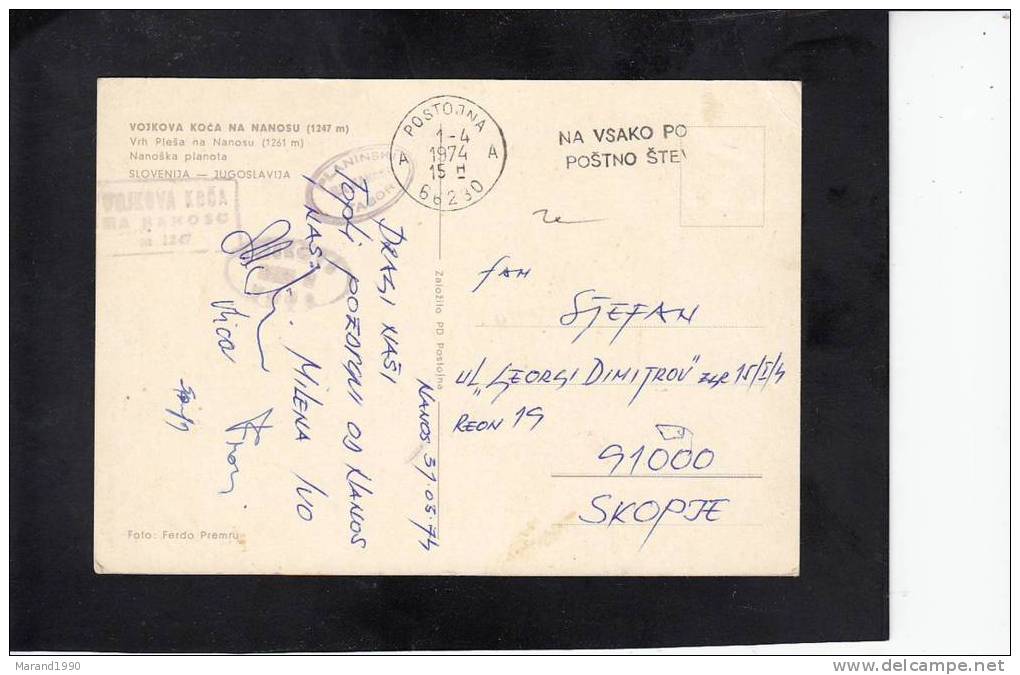 VOJKOVA KOČA NA NANOSU (1247 m)
Vrh Pleša na Nanosu (1261 m)
Nanoška planota
SLOVENIJA — JUGOSLAVIJA
VOJKOVA KOČA
NA NANOSU
m 1247
PLANINSKI
TABOR
POSTOJNA
A A
1-4
1974
15 H
66230
NA VSAKO PO
POŠTNO ŠTEV
DRAGI NAŠI
TOPLI POZDRAVI OD NANOS
MILENA IVO
NANOS 31.03.74
Založilo PD Postojna
FAM
STEFAN
UL „GEORGI DIMITROV" ZGR 15/I/4
REON 19
91000
SKOPJE
Foto: Ferdo Premru
Marand1990
http://www.delcampe.net